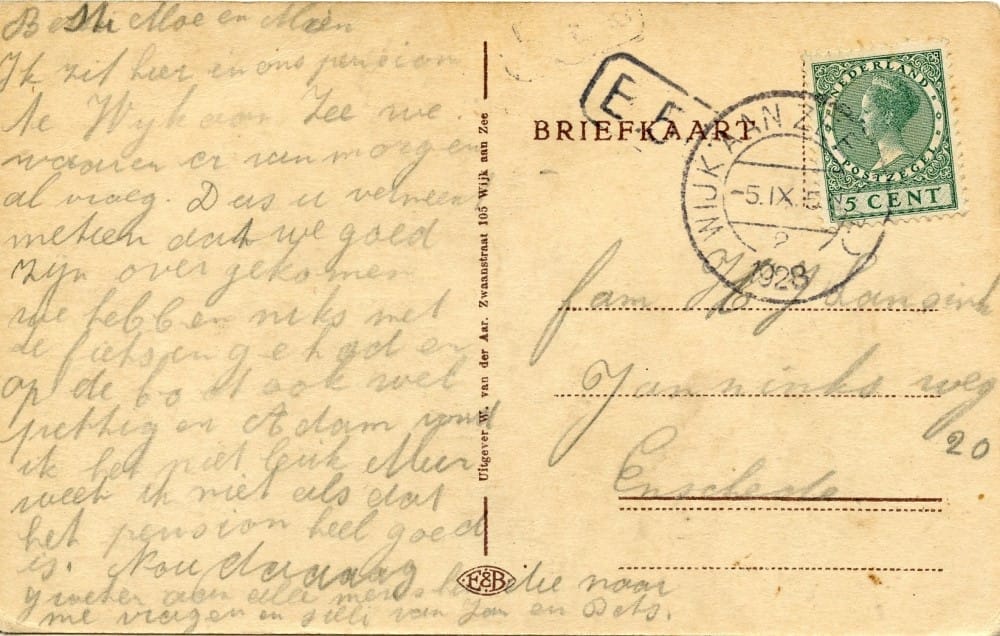 Moe en
Ik zit hier in ons pension
Wijk aan Zee we
waaren er van morgen
al vroeg. Dus u verneemt
meteen dat we goed
zijn over gekomen
we hebben niks met
de fietsen gehad en
op de boot ook wel
prettig en Adam vond
ik het niet leuk Meer
weet ik niet als dat
het pension heel goed
is. Nou daaaag
groeten aan alle mensen die naar
me vragen en van Jan en Bets.
Uitgever W. van der Aar. Zwaanstraat 105 Wijk aan Zee
E&B
E
BRIEFKAART
WIJK AAN ZEE
-5.IX.
1928
NEDERLAND
POSTZEGEL
5 CENT
fam
Janninks weg
20
Enschede